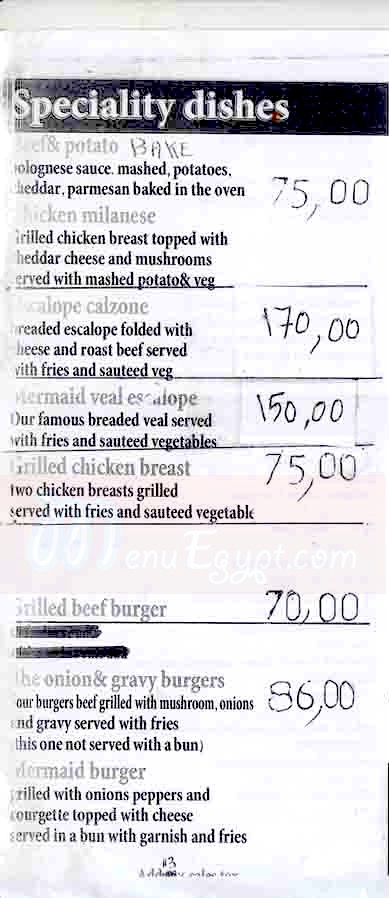 Speciality dishes
Beef& potato BAKE
bolognese sauce. mashed, potatoes,
cheddar, parmesan baked in the oven
75,00
Chicken milanese
Grilled chicken breast topped with
cheddar cheese and mushrooms
served with mashed potato& veg
Escalope calzone
breaded escalope folded with
cheese and roast beef served
with fries and sauteed veg
170,00
Mermaid veal escalope
Our famous breaded veal served
with fries and sauteed vegetables
150,00
Grilled chicken breast
two chicken breasts grilled
served with fries and sauteed vegetable
75,00
MenuEgypt.com
Grilled beef burger
70,00
The onion& gravy burgers
our burgers beef grilled with mushroom, onions
and gravy served with fries
(this one not served with a bun)
86,00
Mermaid burger
grilled with onions peppers and
courgette topped with cheese
served in a bun with garnish and fries
#3